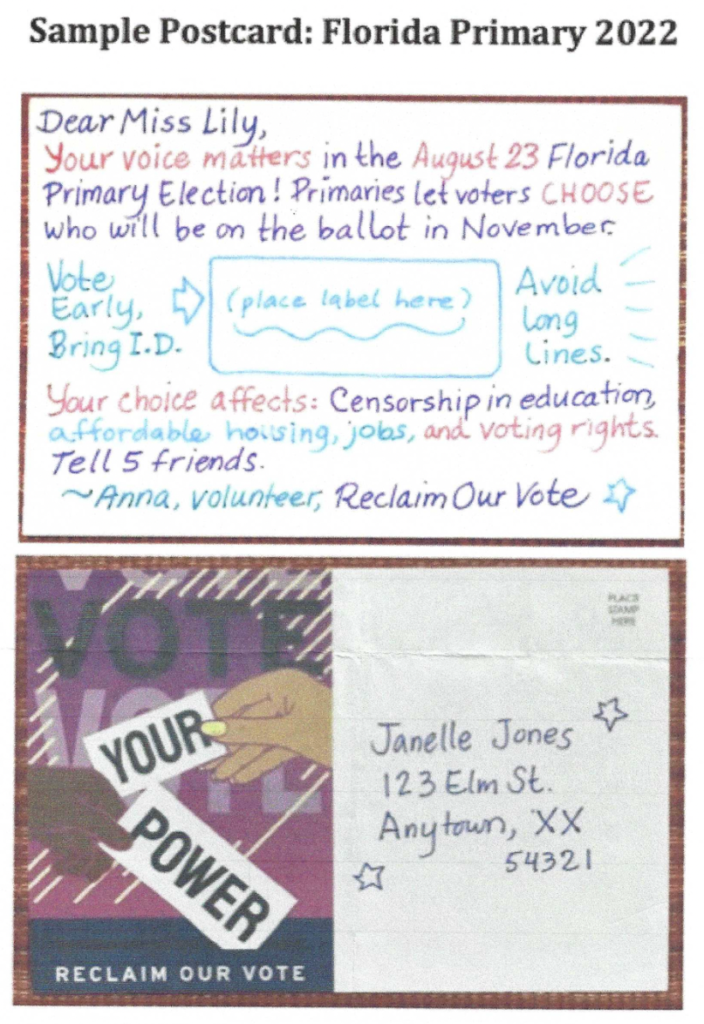 Sample Postcard: Florida Primary 2022
Dear Miss Lily,
Your voice matters in the August 23 Florida
Primary Election! Primaries let voters CHOOSE
who will be on the ballot in November.
Vote
Early,
Bring I.D.
(place label here)
Avoid
Long
Lines.
Your choice affects: Censorship in education,
affordable housing, jobs, and voting rights.
Tell 5 friends.
~Anna, volunteer, Reclaim Our Vote
VOTE
VOTE
VOTE
YOUR
POWER
RECLAIM OUR VOTE
PLACE
STAMP
HERE
Janelle Jones
123 Elm St.
Anytown, XX
54321